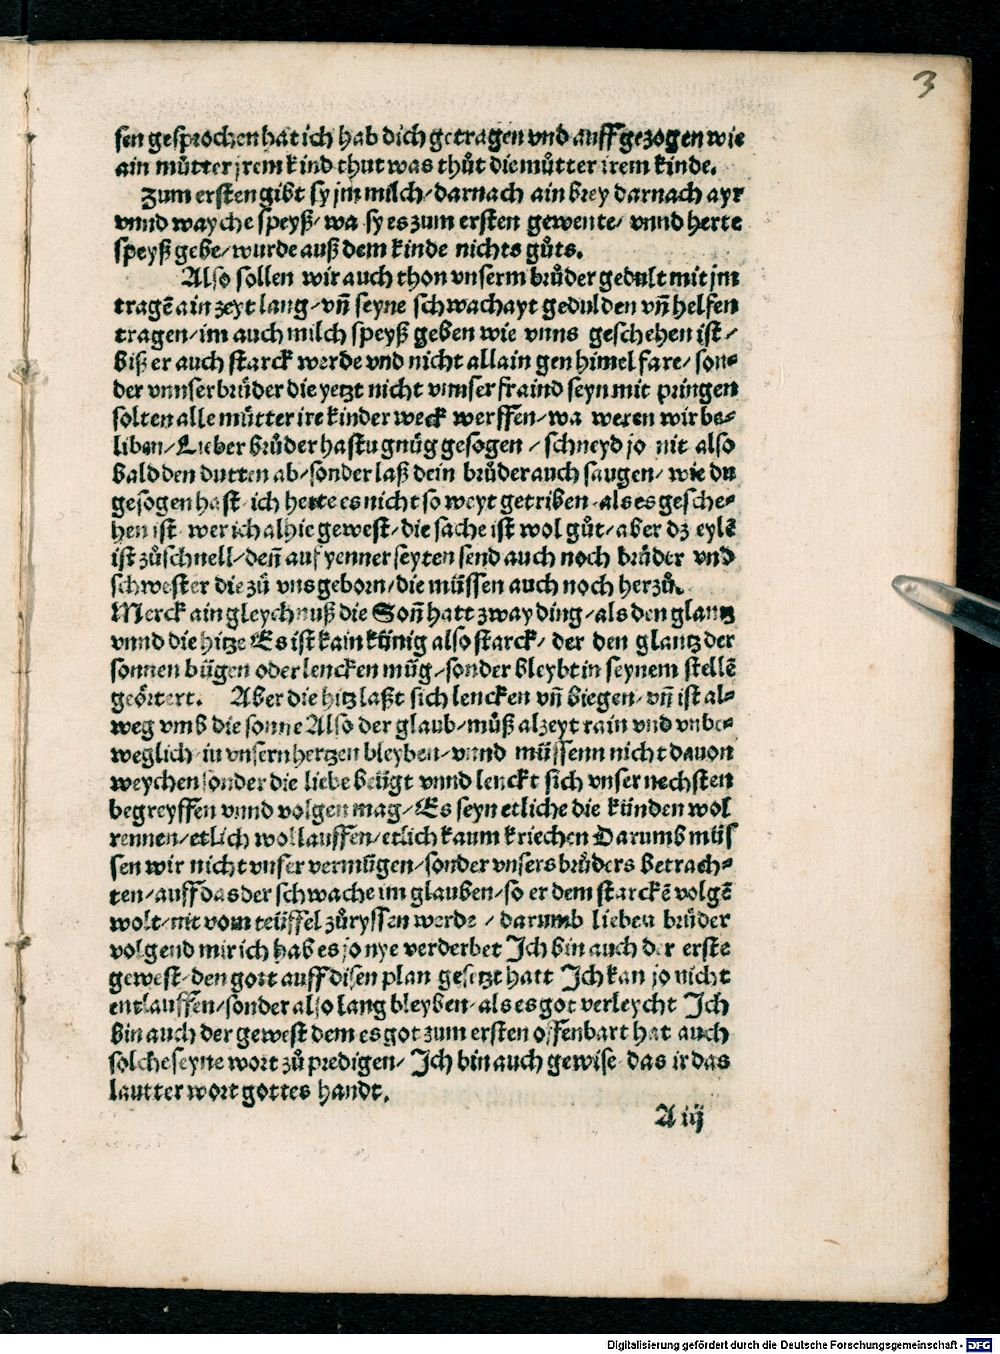 3
sen gesprochen hat ich hab dich getragen vnd auff gezogen wie
ain můtter jrem kind thut was thůt die můtter irem kinde.
Zum ersten gibt sy jm milch/ darnach ain brey darnach ayr
vnnd wayche speyß/ wa sy es zum ersten gewente/ vnnd herte
speyß gebe/ wurde auß dem kinde nichts gůts.
Also sollen wir auch thon vnserm brůder gedult mit jm
tragē ain zeyt lang/ vñ seyne schwachayt gedulden vñ helfen
tragen/ im auch milch speyß geben wie vnns geschehen ist/
biß er auch starck werde vnd nicht allain gen himel fare/ son⸗
der vnnser brůder die yetzt nicht vnnser fraind seyn mit pringen
solten alle můtter ire kinder weck werffen/ wa weren wir be⸗
liben/ Lieber brůder hastu gnůg gesogen / schneyd jo nit also
bald den dutten ab/ sonder laß dein brůder auch saugen/ wie du
gesogen hast/ ich hette es nicht so weyt getriben/ als es gesche⸗
hen ist/ wer ich alhie gewest/ die sache ist wol gůt/ aber dz eylē
ist zůschnell/ deñ auf yenner seyten send auch noch brůder vnd
schwester die zů vns geborn/ die müssen auch noch herzů.
Merck ain gleychnuß die Soñ hatt zway ding/ als den glantz
vnnd die hitze Es ist kain künig also starck/ der den glantz der
sonnen bügen oder lencken müg/ sonder bleybt in seynem stellē
geörtert. Aber die hitz laßt sich lencken vñ biegen/ vñ ist al⸗
weg vmb die sonne Also der glaub/ můß alzeyt rain vnd vnbe⸗
weglich in vnsern hertzen bleyben/ vnnd müssenn nicht dauon
weychen sonder die liebe beügt vnnd lenckt sich vnser nechsten
begreyffen vnnd volgen mag/ Es seyn etliche die künden wol
rennen/ etlich wol lauffen/ etlich kaum kriechen Darumb müs
sen wir nicht vnser vermügen/ sonder vnsers brůders betrach⸗
ten/ auff das der schwache im glauben/ so er dem starckē volgē
wolt/ nit vom teüffel zůryssen werde / darumb lieben brůder
volgend mir ich hab es jo nye verderbet Ich bin auch der erste
gewest/ den gott auff disen plan gesetzt hatt Ich kan jo nicht
entlauffen/ sonder also lang bleyben/ als es got verleycht Ich
bin auch der gewest dem es got zum ersten offenbart hat auch
solche seyne wort zů predigen/ Ich bin auch gewise/ das ir das
lautter wort gottes handt.
A iij
Digitalisierung gefördert durch die Deutsche Forschungsgemeinschaft - DFG